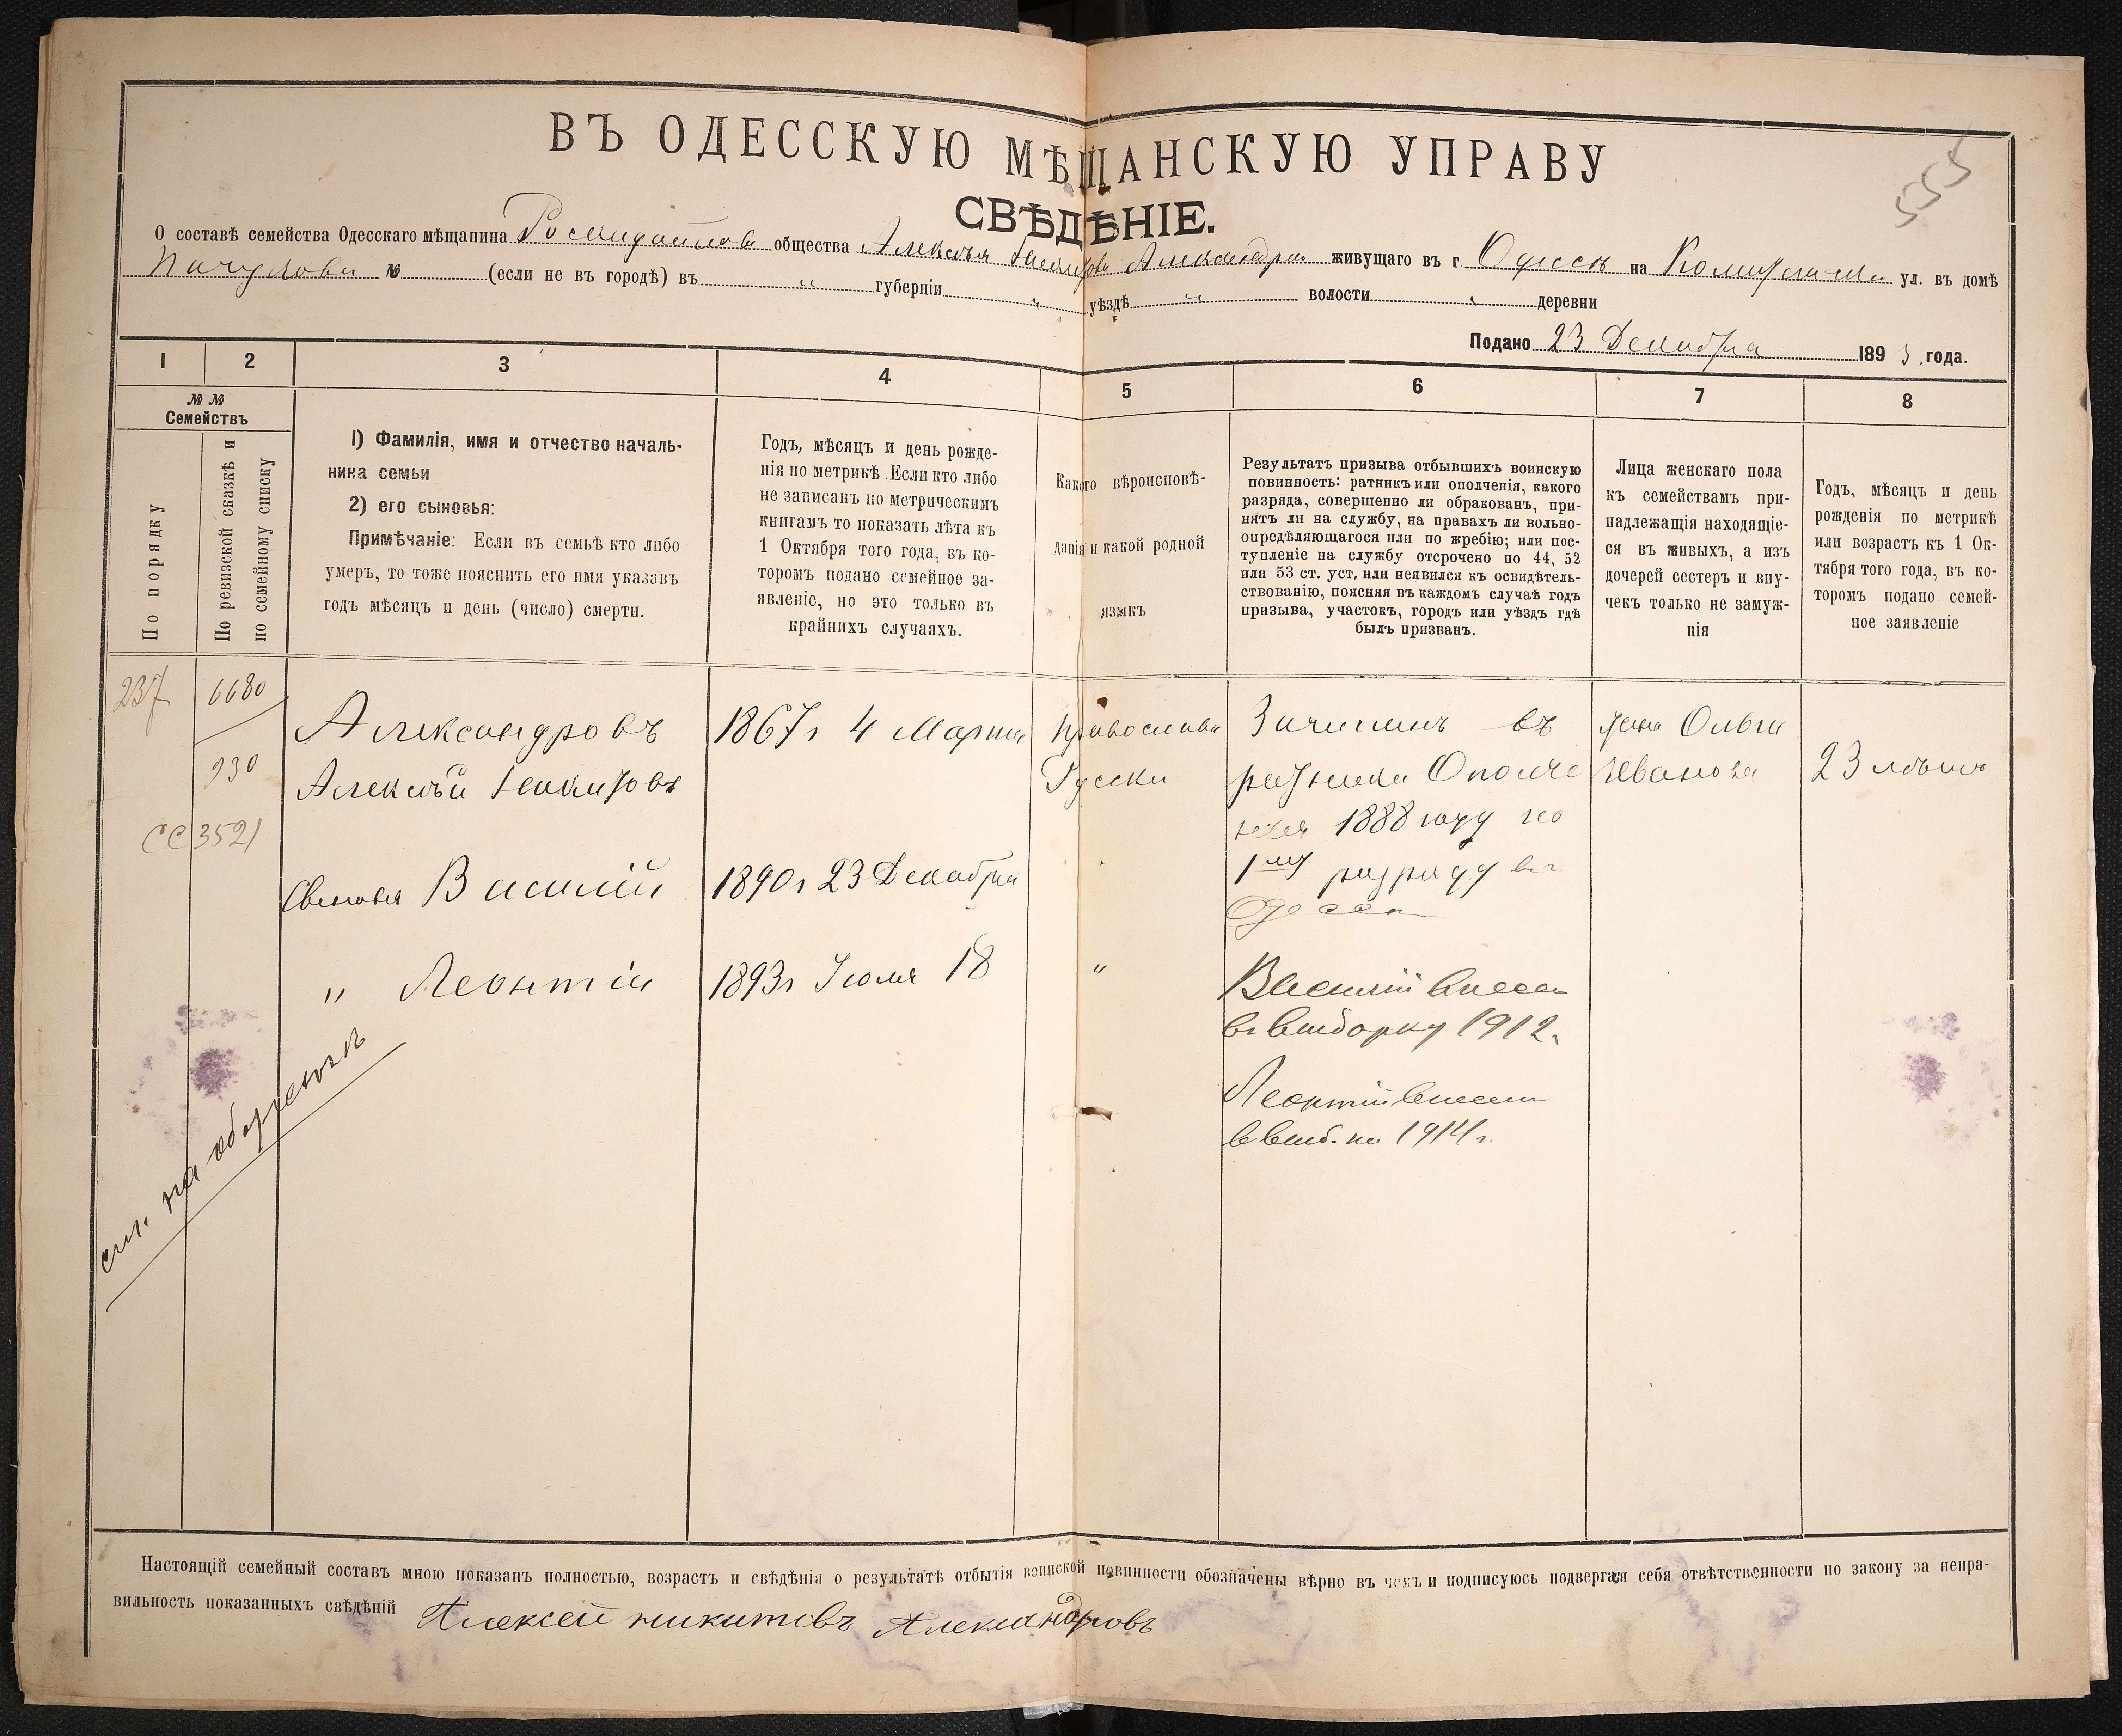 ВЪ ОДЕССКУЮ МѢЩАНСКУЮ УПРАВУ
555
СВѢДѢНІЕ.
О составѣ семейства Одесскаго мѣщанина общества Алексѣя живущаго въ г. Одессѣ на ул. въ домѣ
№ (если не въ городѣ) въ " губерніи " уѣздѣ " волости " деревни
Подано 23 Декабря 1893 года.
1 2 3 4 5 6 7 8
№ №
Семействъ
По порядку
По ревизской сказкѣ и
по семейному списку
1) Фамилія, имя и отчество началь-
ника семьи
2) его сыновья:
Примѣчаніе: Если въ семьѣ кто либо
умеръ, то тоже пояснить его имя указавъ
годъ мѣсяцъ и день (число) смерти.
Годъ, мѣсяцъ и день рожде-
нія по метрикѣ. Если кто либо
не записанъ по метрическимъ
книгамъ то показать лѣта къ
1 Октября того года, въ ко-
торомъ подано семейное за-
явленіе, но это только въ
крайнихъ случаяхъ.
Какого вѣроисповѣ-
данія и какой родной
языкъ
Результатъ призыва отбывшихъ воинскую
повинность: ратникъ или ополченія, какого
разряда, совершенно ли обракованъ, при-
нятъ ли на службу, на правахъ ли вольно-
опредѣляющагося или по жребію; или пос-
тупленіе на службу отсрочено по 44, 52
или 53 ст. уст, или неявился къ освидѣтель-
ствованію, поясняя въ каждомъ случаѣ годъ
призыва, участокъ, городъ или уѣздъ гдѣ
былъ призванъ.
Лица женскаго пола
къ семействамъ при-
надлежащія находящіе-
ся въ живыхъ, а изъ
дочерей сестеръ и вну-
чекъ только не замуж-
нія
Годъ, мѣсяцъ и день
рожденія по метрикѣ
или возрастъ къ 1 Ок-
тября того года, въ ко-
торомъ подано семей-
ное заявленіе
237 6680
930
СС 3521
Александровъ
Алексѣй Никитовъ
Сыновья Василій
" Леонтій
1867г 4 Марта
1890г 23 Декабря
1893г Іюля 18
Русски
"
Зачисленъ въ
ратники Ополче
нія 1888 году по
1му разряду въ
Одессѣ
Василій внесен
въ выборку 1912.
Леонтій внесен
в выб. на 1914 г.
жена Ольга
Иванова
23 лѣтъ
см. на оборотѣ
Настоящій семейный составъ мною показанъ полностью, возрастъ и свѣдѣнія о результатѣ отбытія воинской повинности обозначены вѣрно въ чемъ и подписуюсь подвергая себя отвѣтственности по закону за непра-
вильность показанныхъ свѣдѣній Алексей никитовъ Александровъ